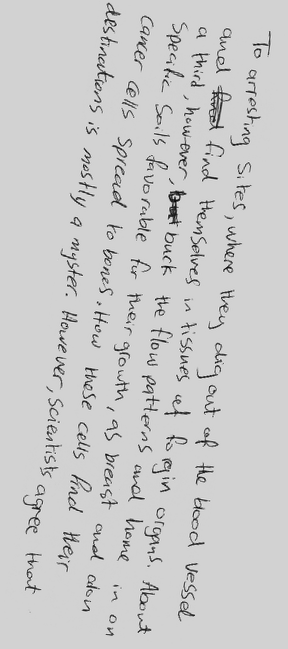 To arresting sites, where they dig out of the blood vessel
and find themselves in tissues of foregin organs. About
a third, however, buck the flow patterns and home in on
specific soils favorable for their growth, as breast and
cancer cells spread to bones. How these cells find their
destinations is mostly a myster. However, scientists agree that